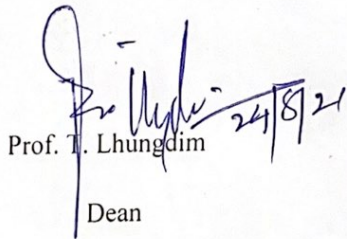 24/8/21
Prof. T. Lhungdim
Dean